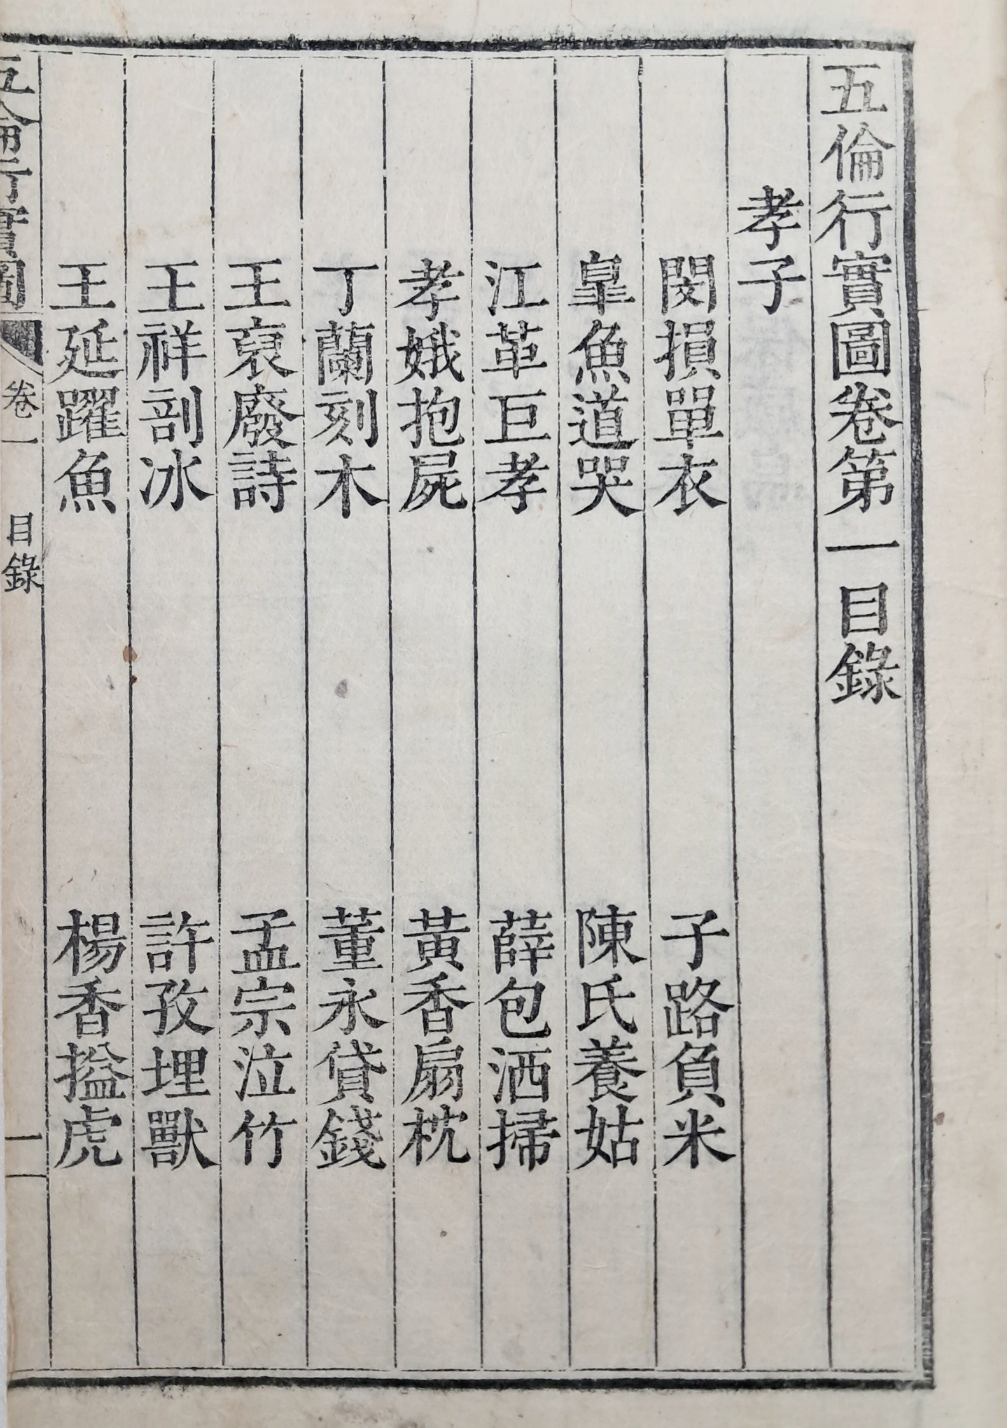 五倫行實圖卷第一目錄
孝子
閔損單衣 子路負米
皐魚道哭 陳氏養姑
江革巨孝 薛包洒掃
孝娥抱屍 黃香扇枕
丁蘭刻木 董永貸錢
王裒廢詩 孟宗泣竹
王祥剖冰 許孜埋獸
王延躍魚 楊香搤虎
五倫行實圖 卷一 目錄 一